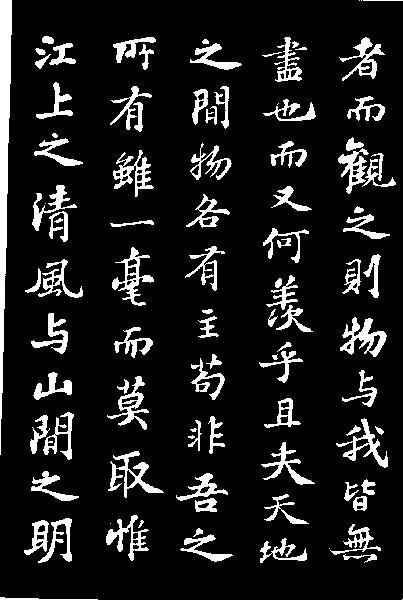 者而觀之則物与我皆無
盡也而又何羨乎且夫天地
之間物各有主苟非吾之
所有雖一毫而莫取惟
江上之清風与山間之明